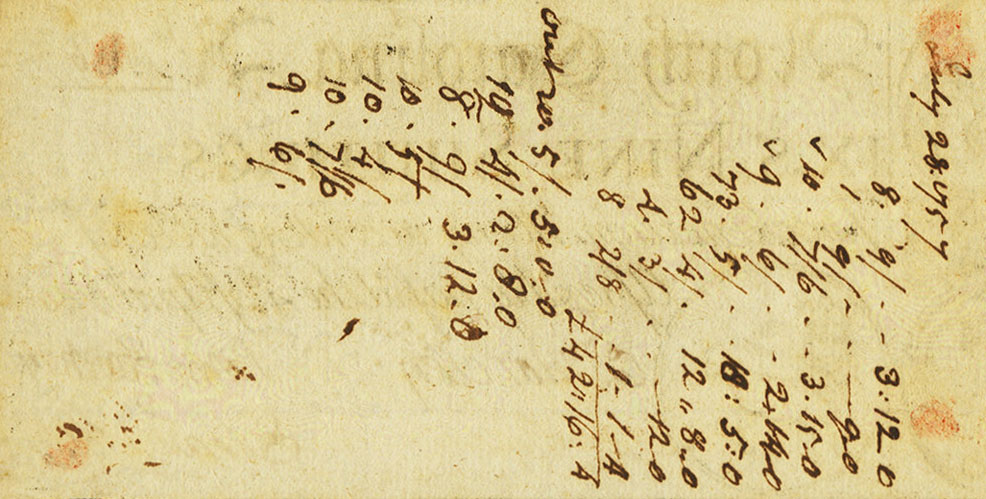 July 28: 1757
8. 9/ . . 3:12 0
1 9/. — 9.0
10. 7/6 . . 3.15.0
9. 6/ . . 2:14.0
73. 5/ . . 18:5:0
62 4/. . 12,,8.0
4 3/ . — 12.0
8 2/8 . . 1. 1. 4
£42:16:4
out 20. 5/. 5:0.0
12 4/. 2:8.0
8. 9/ 3.12.0
10. 
10. 4/
10. 7/6
9. 6/.